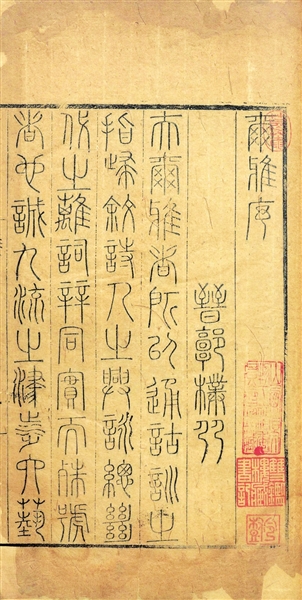 爾雅序
晉郭樸
夫爾雅者所以通詁訓之
指歸敘詩人之興詠總絕
代之離詞辯同實而殊號
者也誠九流之津涉六藝